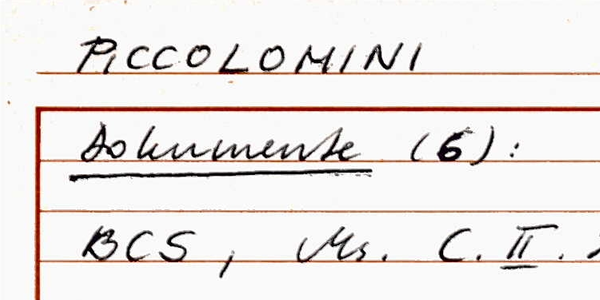 PICCOLOMINI
Dokumente (6):
BCS, Ms. C. II.